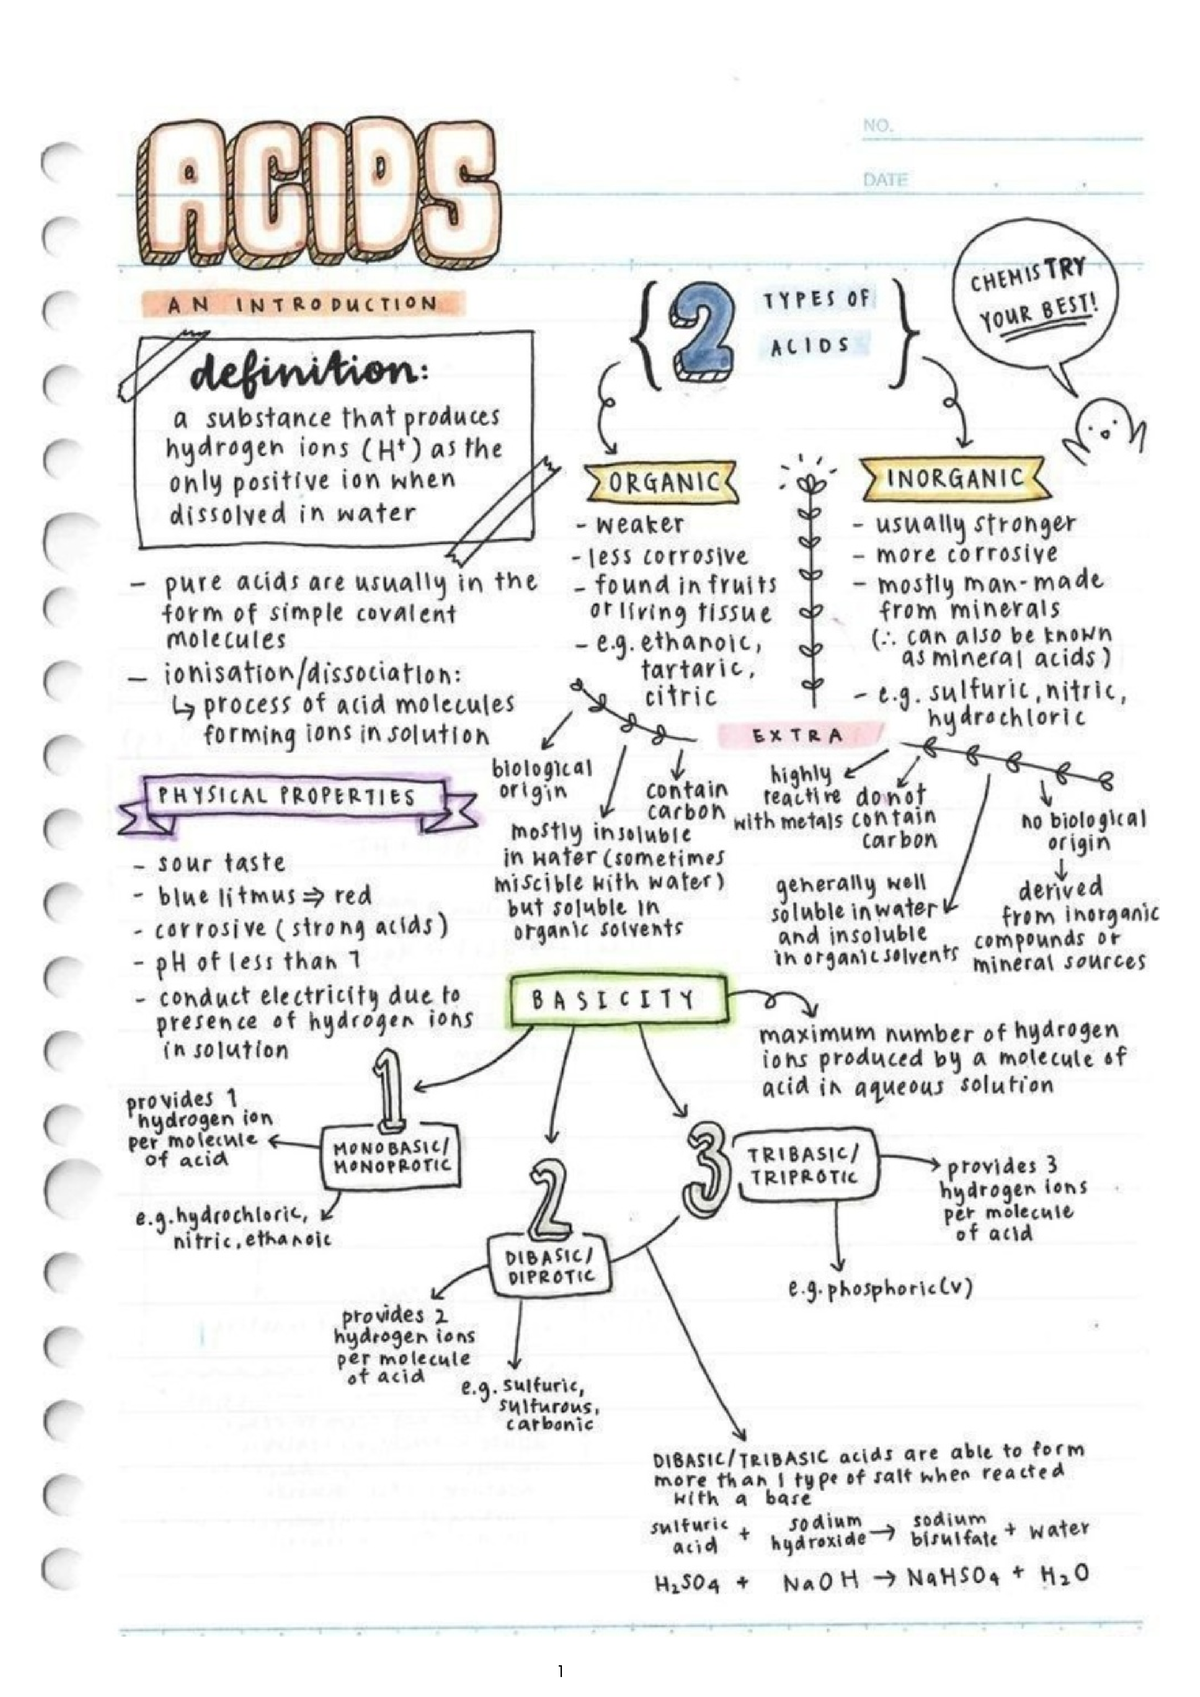 ACIDS
NO.
DATE
AN INTRODUCTION
definition:
a substance that produces
hydrogen ions (H⁺) as the
only positive ion when
dissolved in water
- pure acids are usually in the
form of simple covalent
molecules
- ionisation/dissociation:
↳ process of acid molecules
forming ions in solution
PHYSICAL PROPERTIES
- sour taste
- blue litmus ⇒ red
- corrosive (strong acids)
- pH of less than 7
- conduct electricity due to
presence of hydrogen ions
in solution
{ 2 TYPES OF
ACIDS }
CHEMISTRY
YOUR BEST!
ORGANIC
- weaker
- less corrosive
- found in fruits
or living tissue
- e.g. ethanoic,
tartaric,
citric
INORGANIC
- usually stronger
- more corrosive
- mostly man-made
from minerals
(∴ can also be known
as mineral acids)
- e.g. sulfuric, nitric,
hydrochloric
EXTRA
biological
origin
mostly insoluble
in water (sometimes
miscible with water)
but soluble in
organic solvents
contain
carbon
highly
reactive
with metals
do not
contain
carbon
generally well
soluble in water
and insoluble
in organic solvents
no biological
origin
↓
derived
from inorganic
compounds or
mineral sources
BASICITY
maximum number of hydrogen
ions produced by a molecule of
acid in aqueous solution
1
MONOBASIC/
MONOPROTIC
provides 1
hydrogen ion
per molecule
of acid
e.g. hydrochloric,
nitric, ethanoic
2
DIBASIC/
DIPROTIC
provides 2
hydrogen ions
per molecule
of acid
e.g. sulfuric,
sulfurous,
carbonic
3
TRIBASIC/
TRIPROTIC
provides 3
hydrogen ions
per molecule
of acid
e.g. phosphoric(v)
DIBASIC/TRIBASIC acids are able to form
more than 1 type of salt when reacted
with a base
sulfuric acid + sodium hydroxide → sodium bisulfate + water
H₂SO₄ + NaOH → NaHSO₄ + H₂O
1